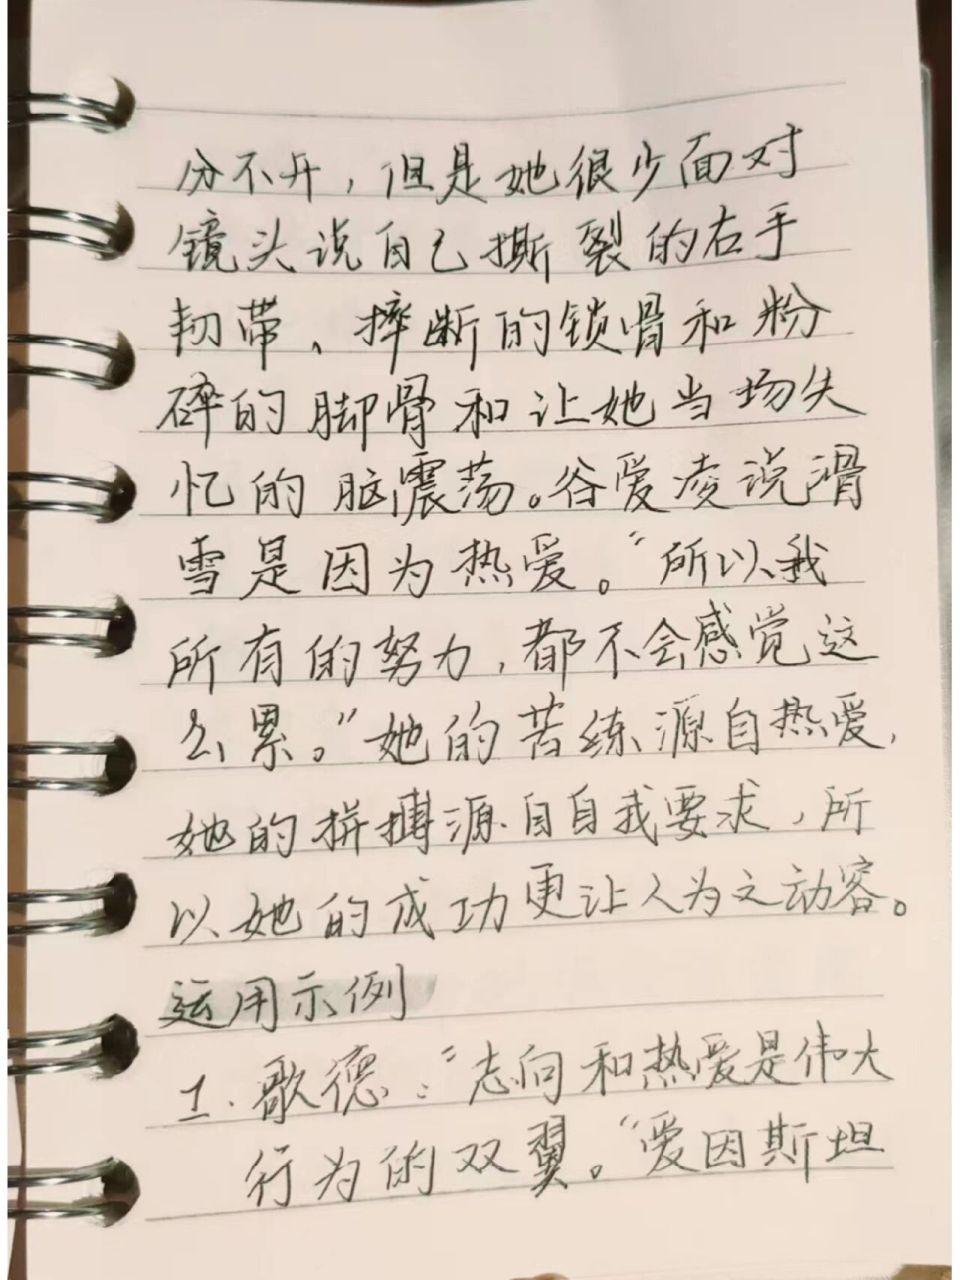 分不开，但是她很少面对
镜头说自己撕裂的右手
韧带、摔断的锁骨和粉
碎的脚骨和让她当场失
忆的脑震荡。谷爱凌说滑
雪是因为热爱。“所以我
所有的努力，都不会感觉这
么累。”她的苦练源自热爱，
她的拼搏源自自我要求，所
以她的成功更让人为之动容。
运用示例
1. 歌德：“志向和热爱是伟大
行为的双翼。”爱因斯坦